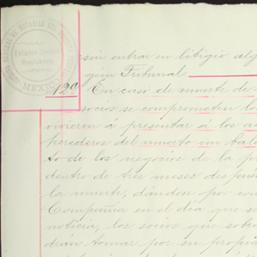 sin entrar en litigio alg
gun Tribunal
12a En caso de muerte de
socios se comprometen lo
vivieren á presentar á los
herederos del muerto un bala
to de los negocios de la
dentro de tres meses despues
la muerte, dandon por
Compañia en el dia que se
noticia, los socios que sobre
dran tomar por su propia
MEXICO
Estados Unidos
Mexicanos